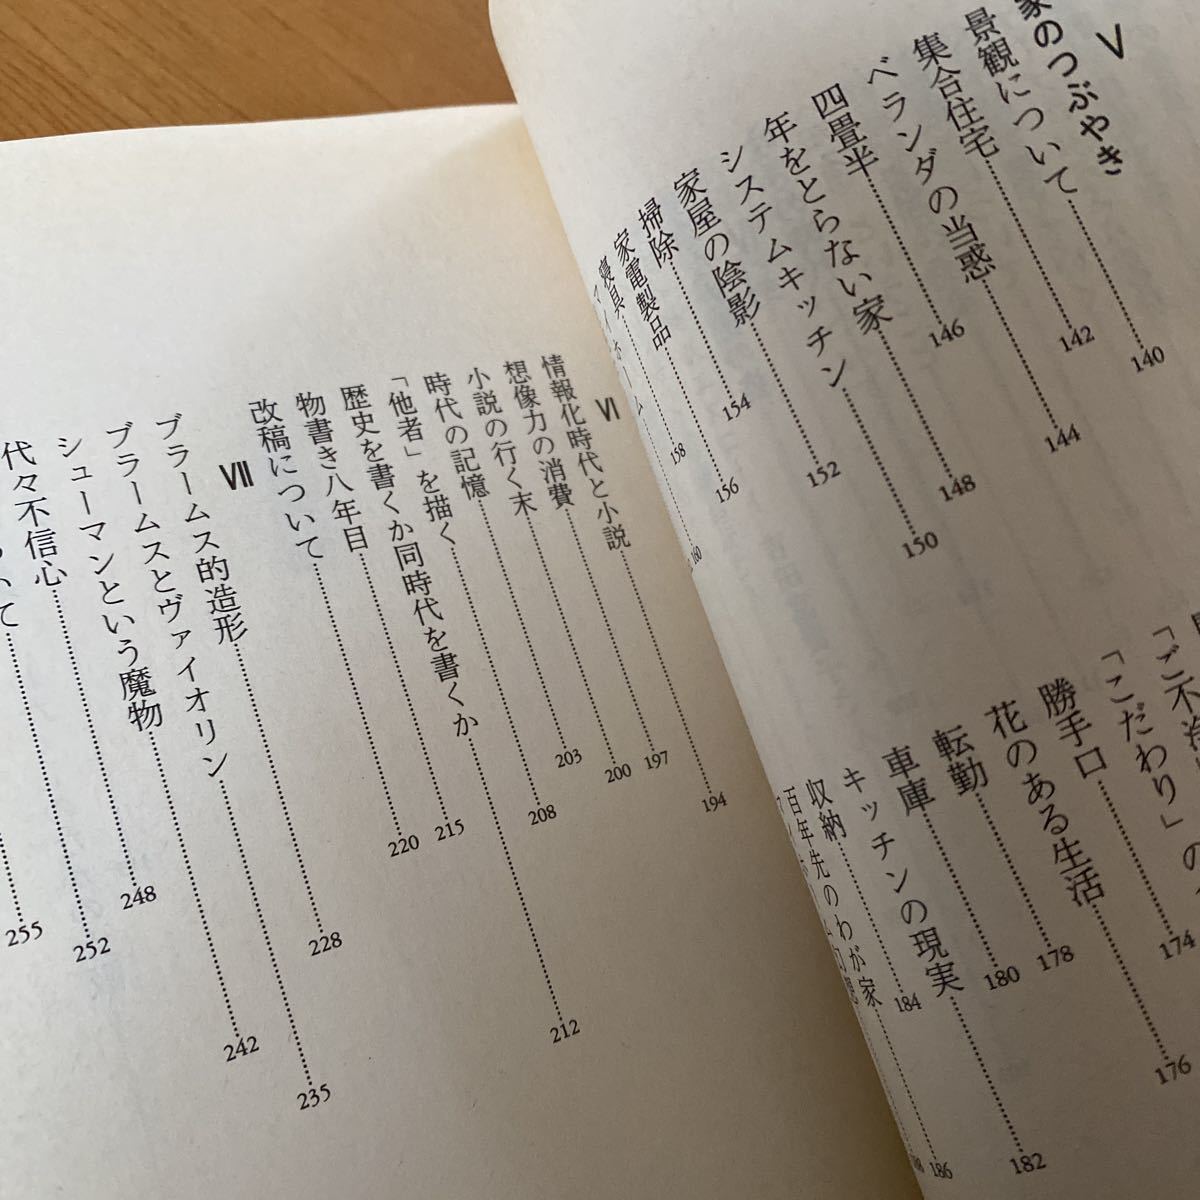 V
家のつぶやき
景観について……140
集合住宅……142
ベランダの当惑……144
四畳半……146
年をとらない家……148
システムキッチン……150
家屋の陰影……152
掃除……154
家電製品……156
寝具……158
マイホーム……160
「こだわり」の
勝手口……174
花のある生活……176
転勤……178
車庫……180
キッチンの現実……182
収納……184
百年先のわが家……186
VI
情報化時代と小説……194
想像力の消費……197
小説の行く末……200
時代の記憶……203
「他者」を描く……208
歴史を書くか同時代を書くか……212
物書き八年目……215
改稿について……220
VII
ブラームス的造形……228
ブラームスとヴァイオリン……235
シューマンという魔物……242
代々不信心……248
いて……252
255